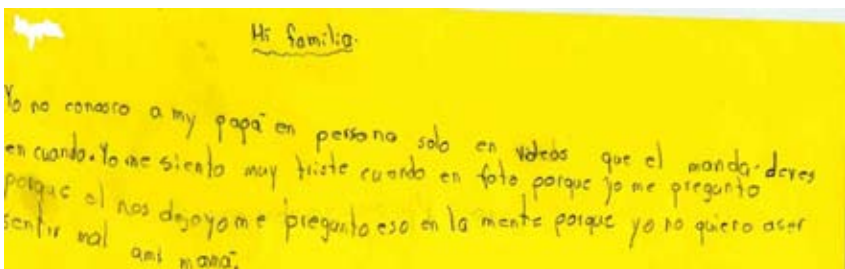 Mi familia.
Yo no conosco a my papá en persona solo en videos que el manda. deves
en cuando. Yo me siento muy triste cuando en foto porque yo me pregunto
porque el nos dejo yo me pregunto eso en la mente porque yo no quiero aser
sentir mal ami mamá.